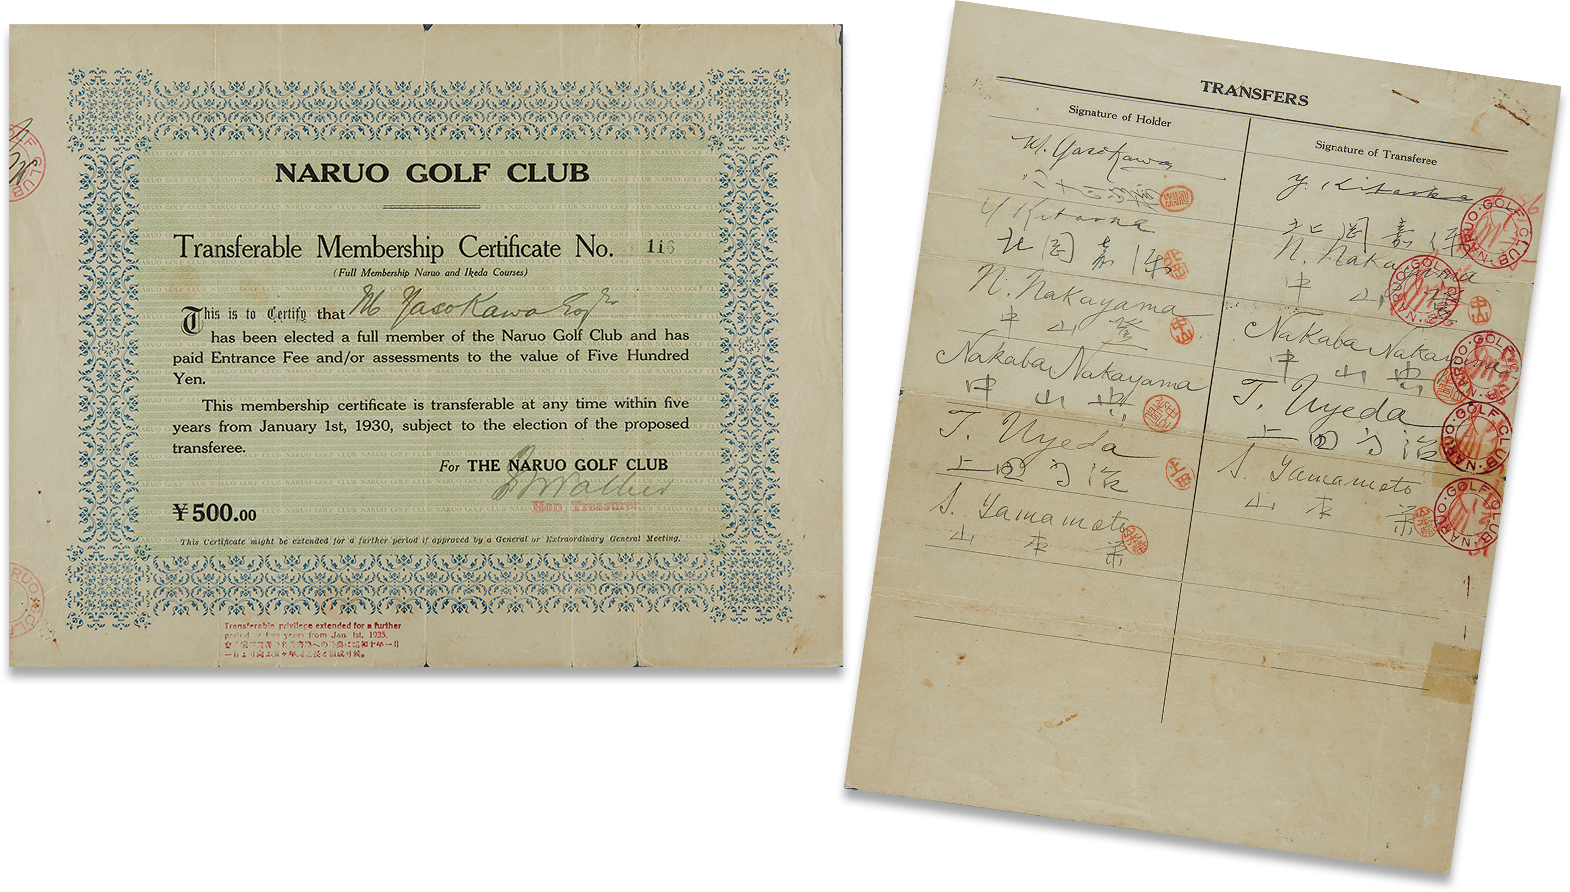 NARUO GOLF CLUB
Transferable Membership Certificate No. 116
(Full Membership Naruo and Ikeda Courses)
This is to Certify that M Yasokawa Esqr
has been elected a full member of the Naruo Golf Club and has
paid Entrance Fee and/or assessments to the value of Five Hundred
Yen.
This membership certificate is transferable at any time within five
years from January 1st, 1930, subject to the election of the proposed
transferee.
For THE NARUO GOLF CLUB
Hon. Treasurer.
¥500.00
This Certificate might be extended for a further period if approved by a General or Extraordinary General Meeting.
Transferable privilege extended for a further
period of five years from Jan. 1st, 1935.
TRANSFERS
Signature of Holder
Signature of Transferee
M. Yasokawa
Y. Kitaoka
Y Kitaoka
北岡嘉
北岡嘉
N. Nakayama
N. Nakayama
中山
中山
Nakaba Nakayama
Nakaba Nakayama
中山
中山
T. Uyeda
T. Uyeda
上田
治
上田
治
S. Yamamoto
S. Yamamoto
山本
山本
NARUO · GOLF CLUB ·
NARUO · GOLF CLUB ·
NARUO · GOLF CLUB ·
NARUO · GOLF CLUB ·
NARUO · GOLF CLUB ·